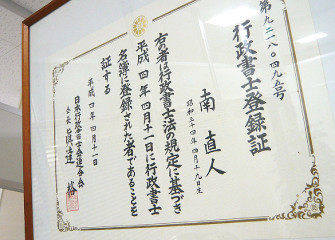 第九二一八〇四九五号
行政書士登録証
南 直人
昭和三十四年四月十九日生
右の者は行政書士法の規定に基づき
平成四年四月十一日に行政書士
名簿に登録された者であることを
証する
平成四年四月十一日
日本行政書士会連合会
会長